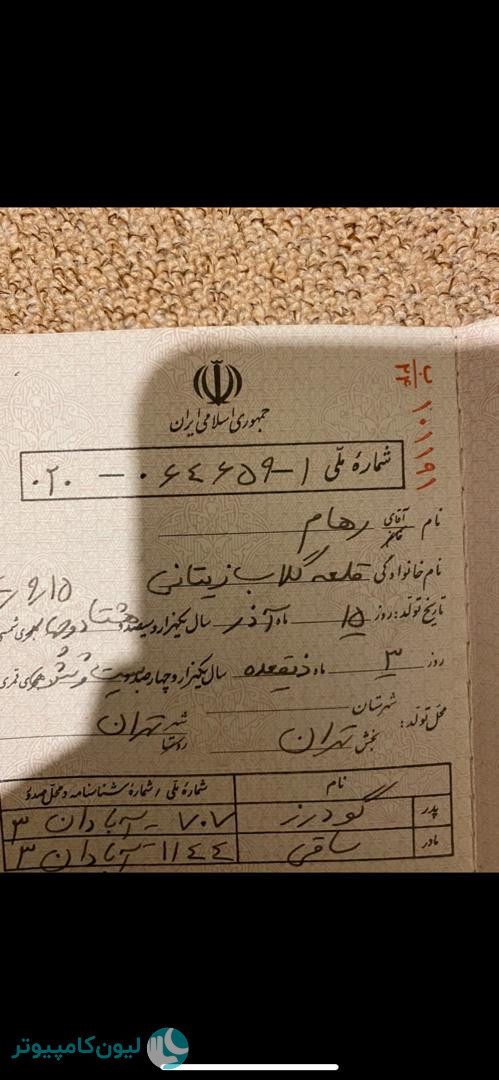 جمهوری اسلامی ایران
ب
۲۴
۱۰۱۱۹۱
شمارهٔ ملّی ۱-۰۶۴۶۵۹-۰۲۰
نام آقای خانم رهام
نام خانوادگی قلعه گلاب زیتانی
تاریخ تولد: روز ۱۵ ماه آذر سال یکهزار و سیصد و هشتاد و چهار هجری شمسی
روز ۳ ماه ذیقعده سال یکهزار و چهارصد و بیست و شش هجری قمری
محل تولد: شهرستان
بخش تهران شهر روستا تهران
نام شمارهٔ ملی / شمارهٔ شناسنامه و محل صدور
پدر گودرز ۷۰۷ - آبادان ۳
مادر ساقی ۱۱۴۴ - آبادان ۳
لیون کامپیوتر